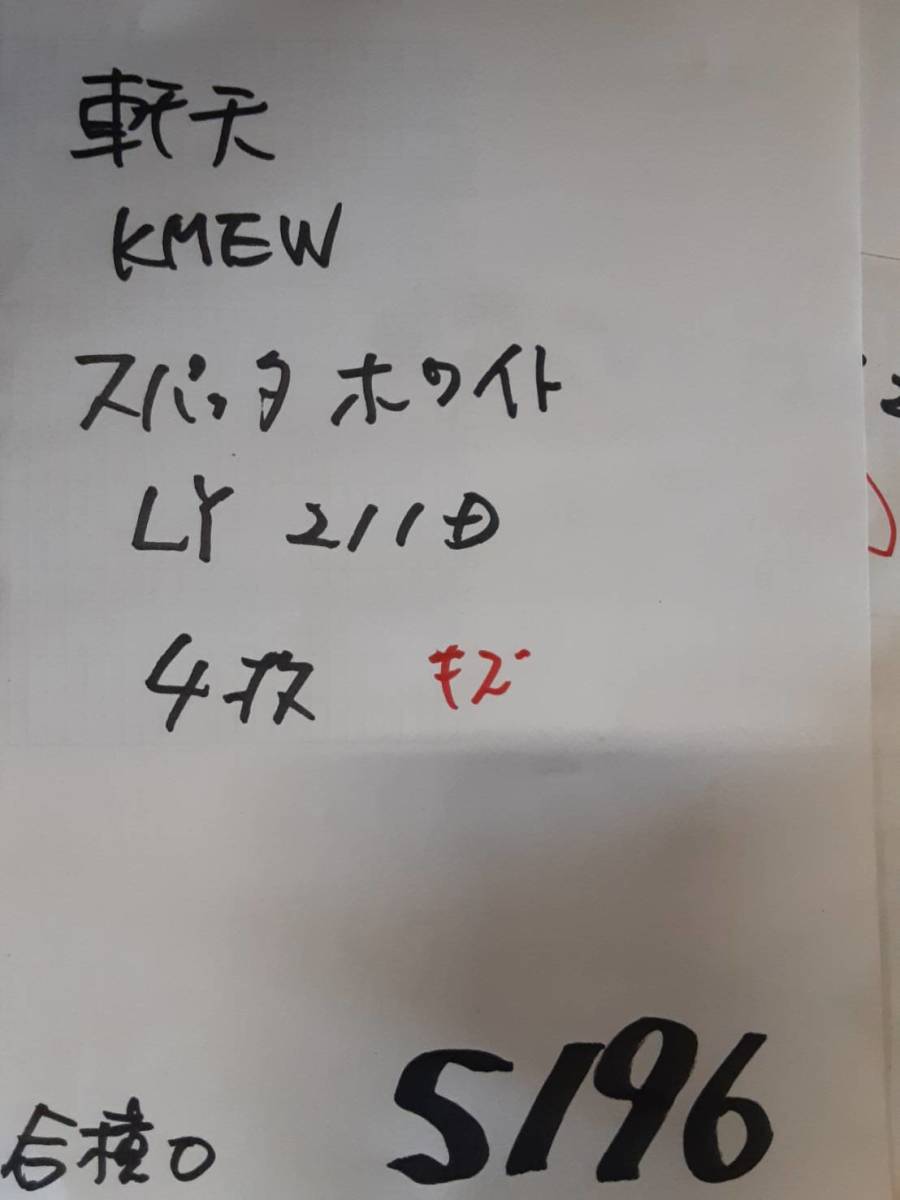 軒天
KMEW
スパッタ ホワイト
LY 211D
4枚 キズ
5196